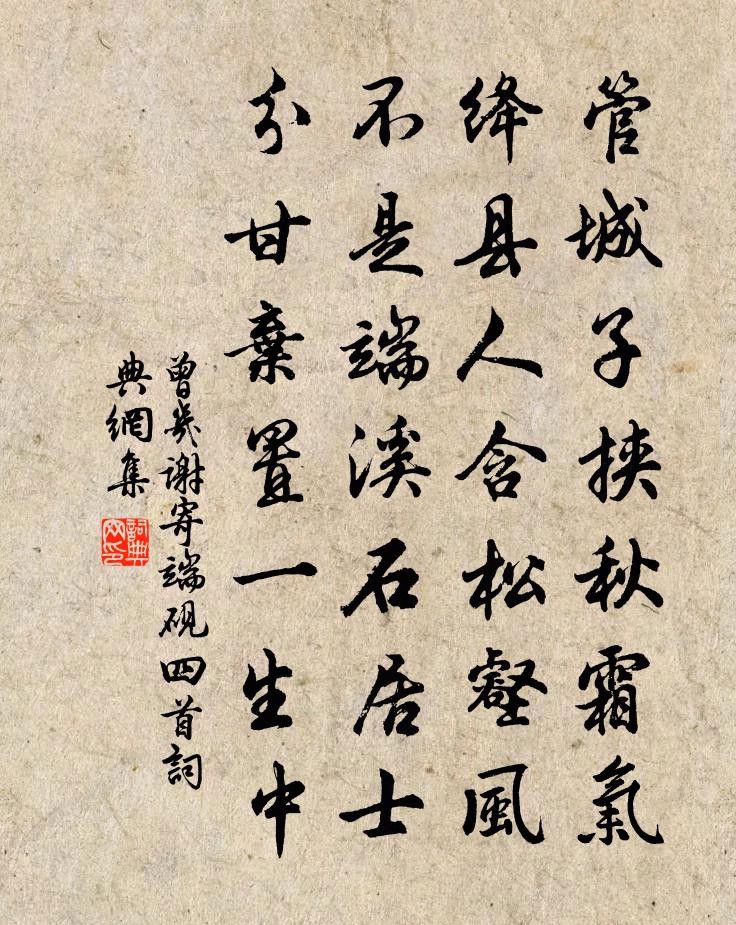 管城子挾秋霜氣
绛县人含松壑風
不是端溪石居士
分甘棄置一生中
曾幾謝寄端硯四首詞
典網集
詞典
网印